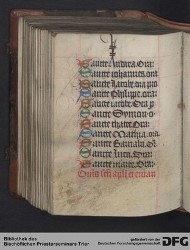 Sancte Andrea. Ora.
Sancte Iohannes. ora
Sancte Iacobe. ora pro
Sancte Philippe. ora.
Sancte Iacobe. Ora p
Sancte Symon. o
Sancte Thatee. Ora.
Sancte Mathia. ora
Sancte Barnaba. Or.
Sancte Luca. Ora.
Sancte Marce. Ora.
Omnes sancti apli et euan
Bibliothek des
Bischöflichen Priesterseminars Trier
gefördert von der
Deutschen Forschungsgemeinschaft
DFG